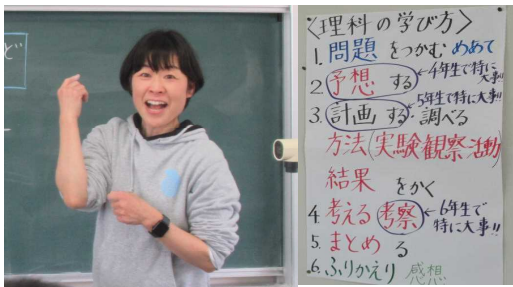 ど
〈理科の学び方〉
1. 問題 をつかむ めあて
2. 予想 する ←4年生で特に大事!!
3. 計画 する・調べる ←5年生で特に大事!!
方法(実験観察活動)
結果 をかく
4 考える 考察 ←6年生で特に大事!!
5. まとめ る
6. ふりかえり 感想